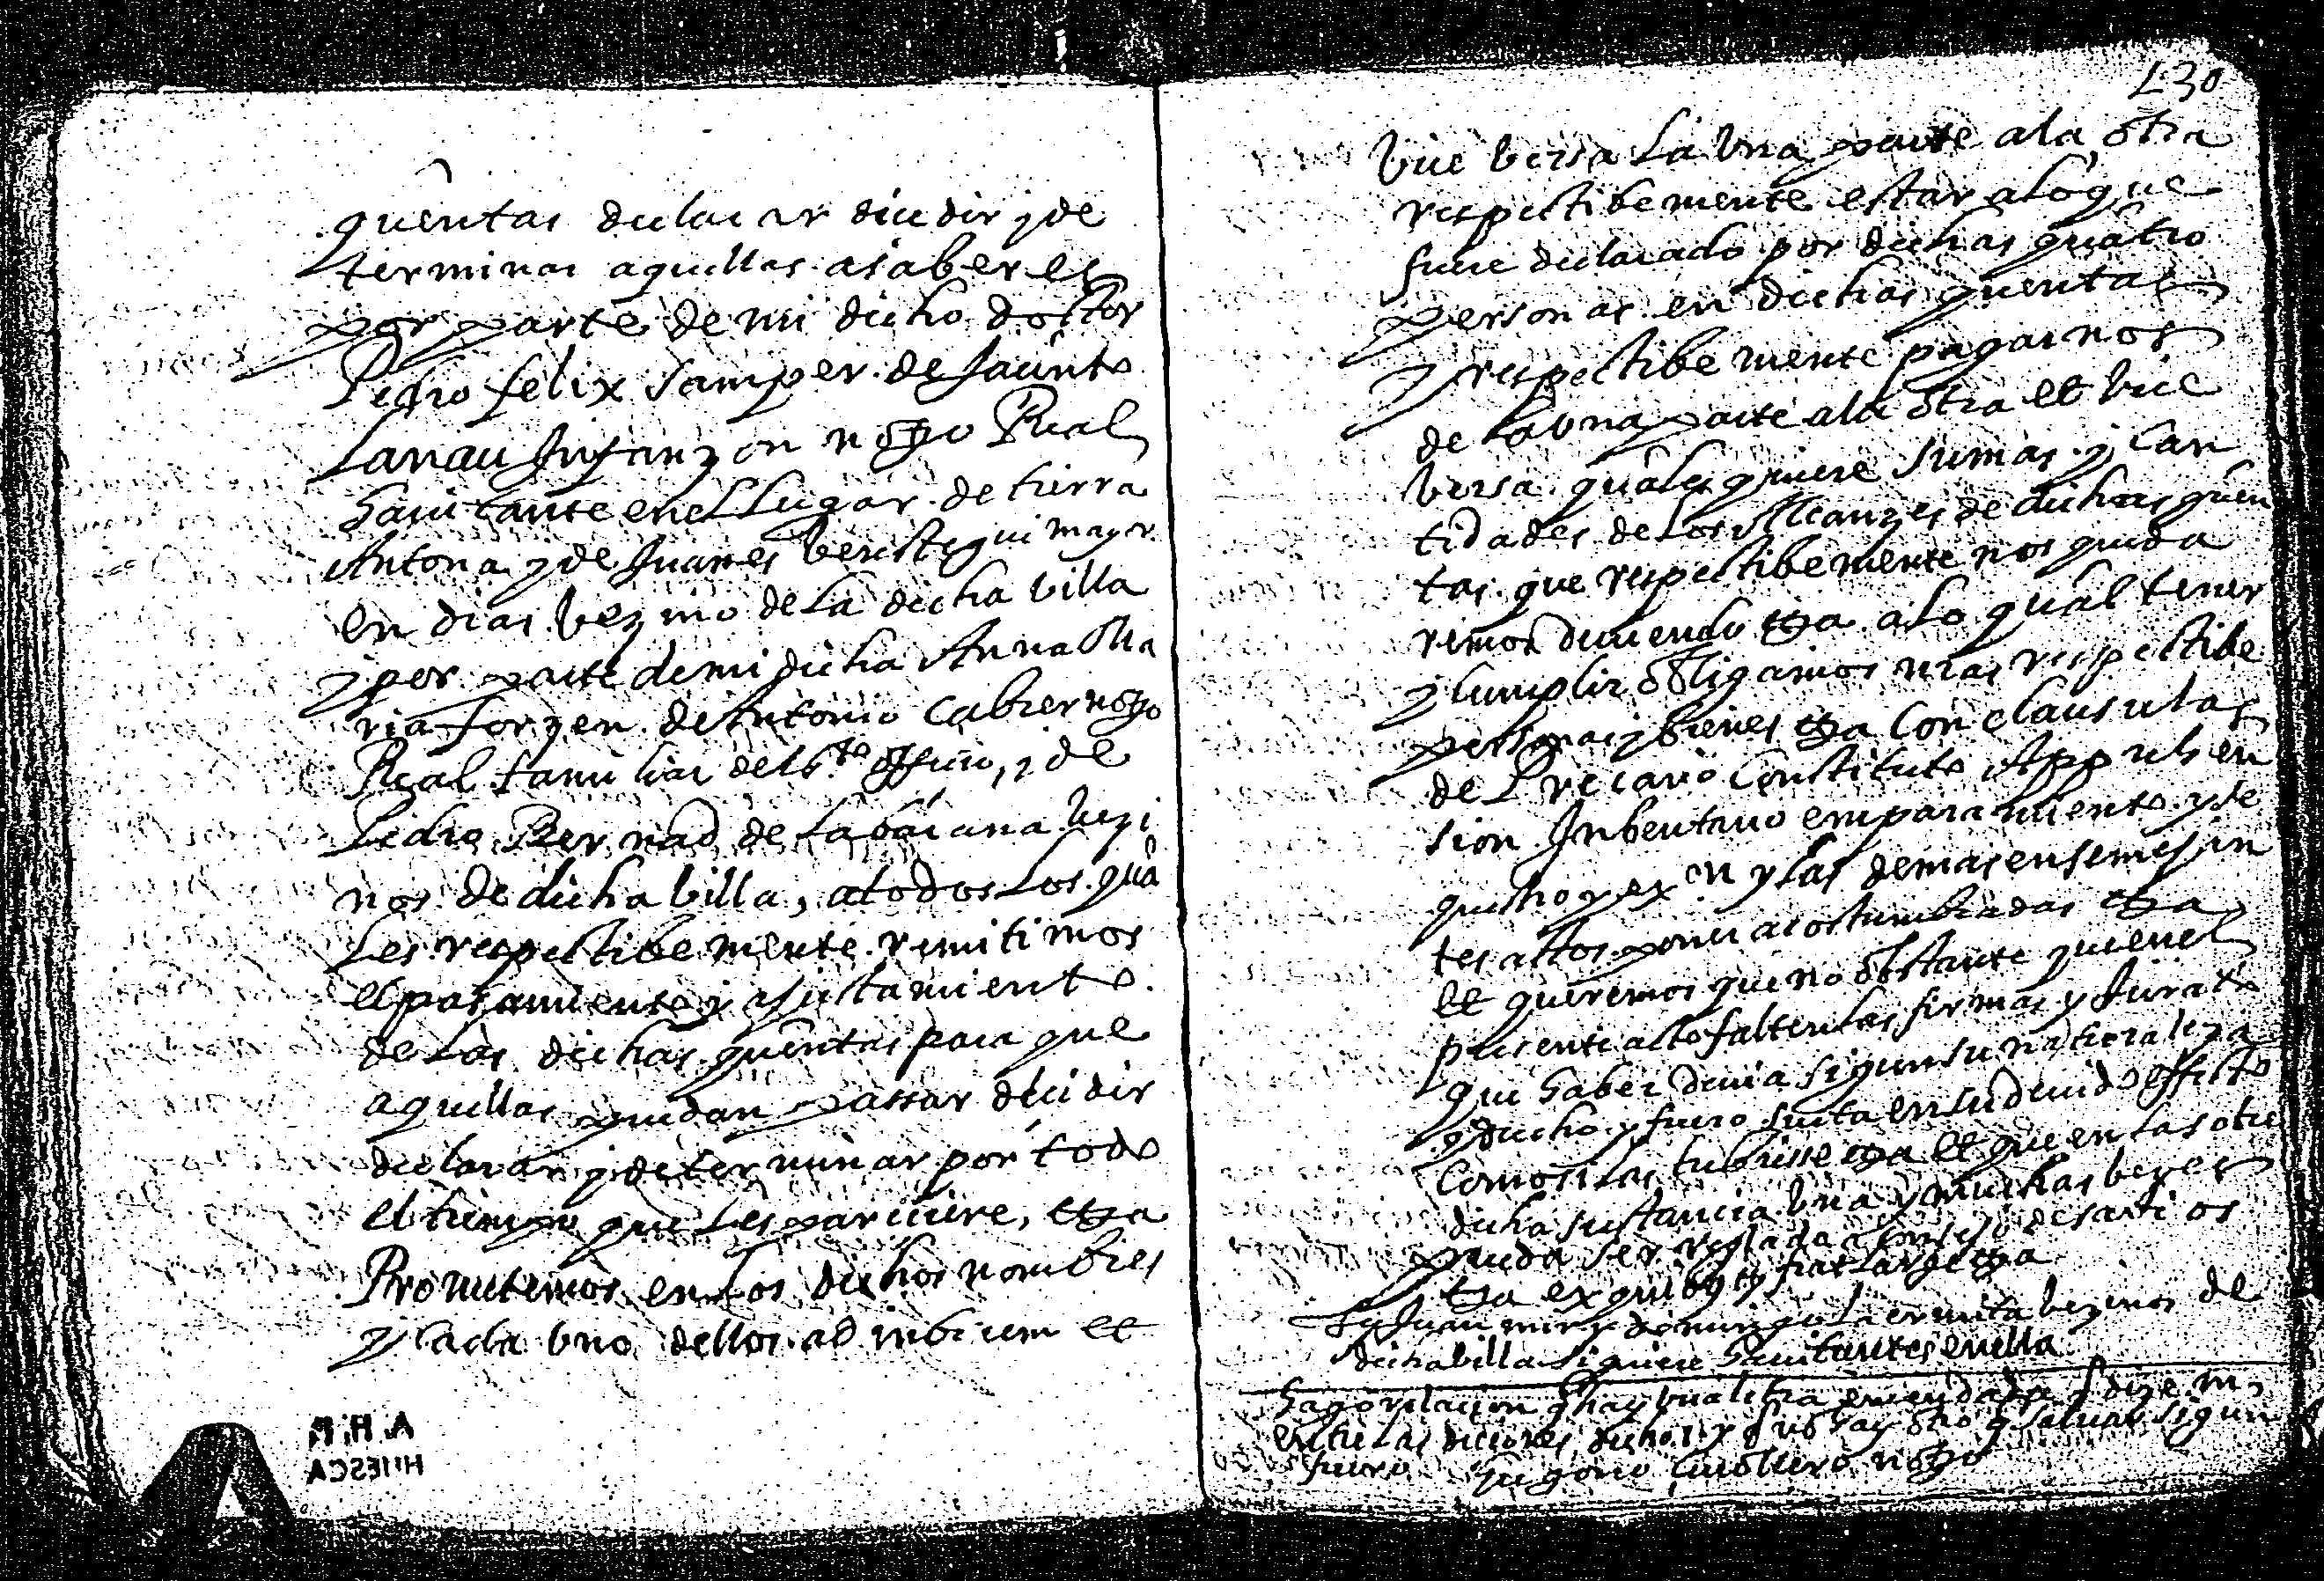 quentas declarar dicidir y de
terminar aquellas asaber es
por parte de mi dicho doctor
Pedro felix Samper de Jacinto
Lanau Infanzon notto Real
havitante en el Lugar de tierra
Antona y de Juanes beristegui mayor
en dias vezino de la dicha billa
y por parte de mi dicha Anna Ma
ria forzen de Antonio Cabrer notto
Real familiar del sto officio, y de
Pedro Bernad de Labaiana vezi
nos de dicha billa, a todos Los qua
Les respectibemente remitimos
el pasamiento y ajustamiento
de Las dichas quentas para que
aquellas puedan passar dicidir
declarar y determinar por todo
el tiempo que Les pareciere, etta
Prometemos en Los dichos nombres
y cada uno dellos ad inbicem et
A.H.P.
HUESCA
230
vice versa La una parte a la otra
respectibemente estar a lo que
fuere declarado por dichas quatro
personas en dichas quentas
y respectibemente pagarnos
de La una parte a la otra et vice
versa qualesquiere sumas y can
tidades de Los Alcanzes de dichas quen
tas que respectibemente nos queda
remos deviendo etta a Lo qual tener
y cumplir obligamos nras respectibe
personas y bienes etta Con clausulas
de Precario Constituto Apprehen
sion Inbentario emparamiento y se
questro y exon y las demas en semejan
tes actos poner acostumbradas etta
et queremos que no obstante que en el
presente acto falten las firmas y Jurato
que haber devia segun su naturaleza
drecho y fuero surta en su devido effecto
Como si las tubiesse etta et que en las otu
dicha sustancia una y muchas bezes
pueda ser reglada a Consejo de sabios
etta ex quibus fiat Large etta
Ts Juan mir y domingo La ermita vezinos de
dicha billa siquiere havitantes en ella
entre Las diciones dichos y
fuero notto